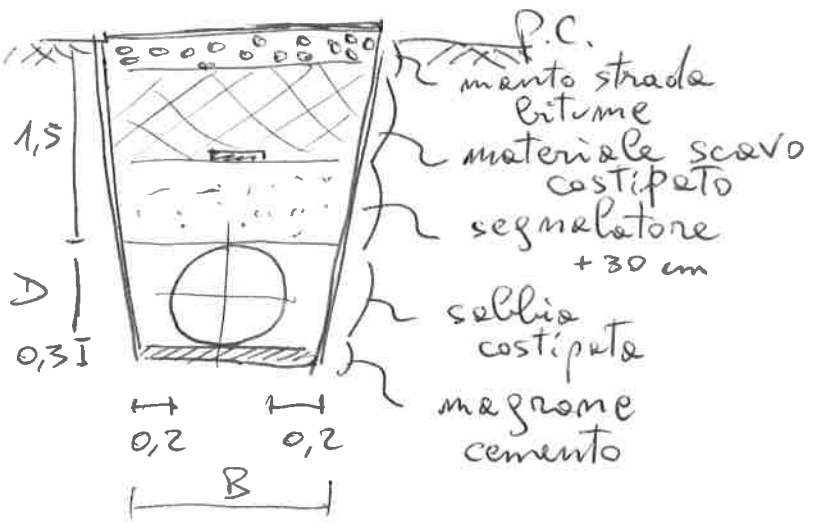 P.C.
manto strada
bitume
1,5
materiale scavo
costipato
segnalatore
+30 cm
D
sabbia
costipata
0,3
magrone
cemento
0,2
0,2
B